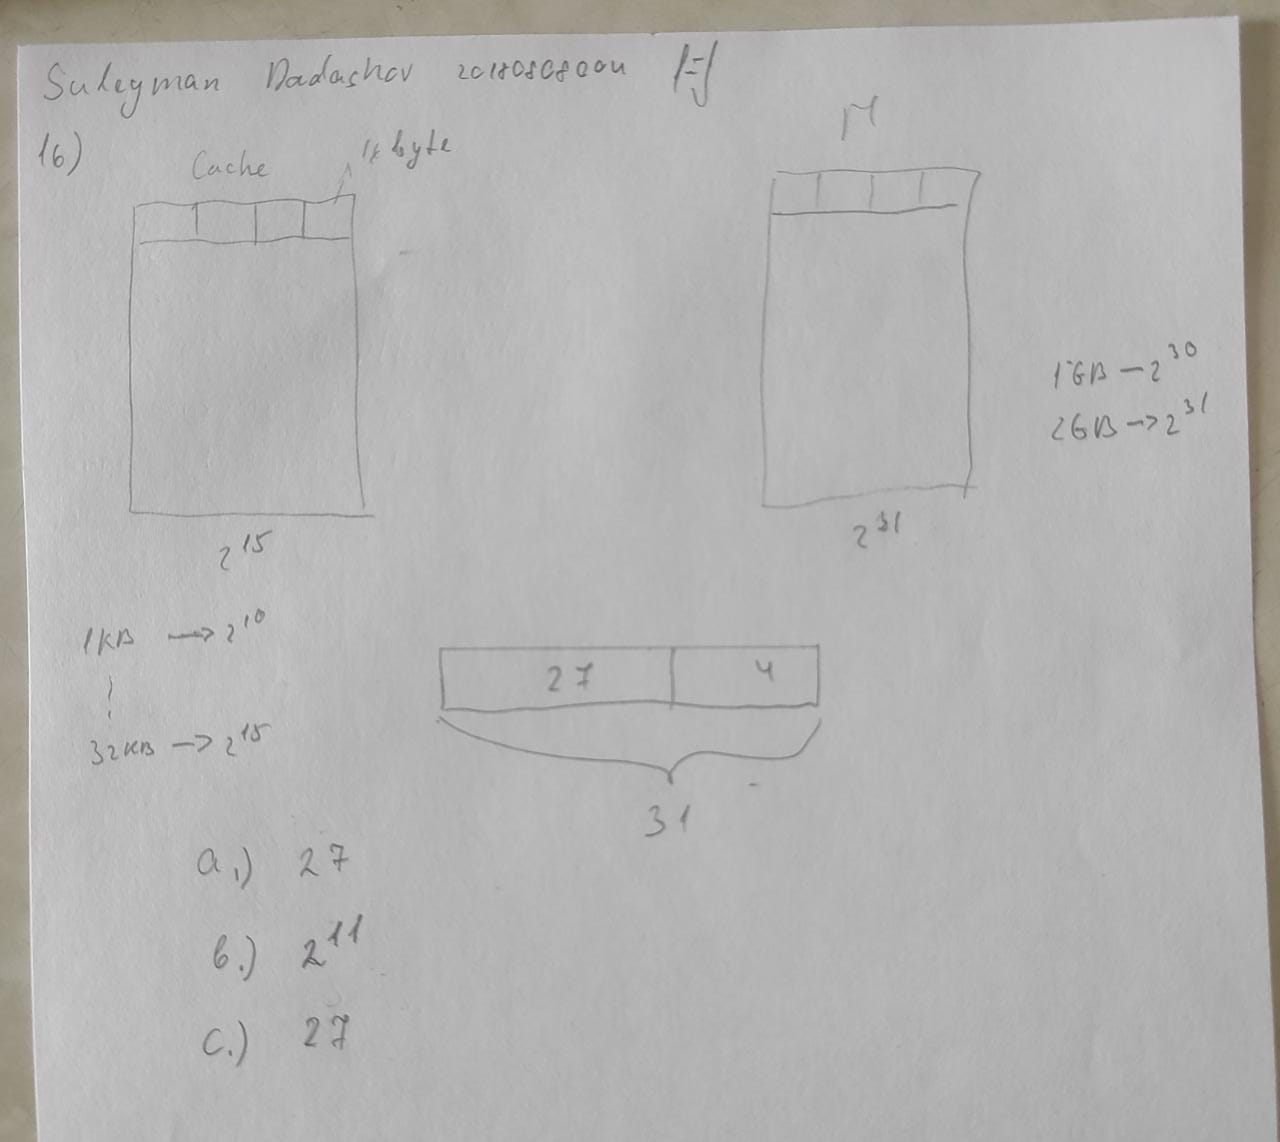 Suleyman Dadashov 20180808004
16)
Cache
byte
M
1GB – 2^30
2GB -> 2^31
2^15
2^31
1KB -> 2^10
32KB -> 2^15
27 4
31
a.) 27
b.) 2^11
c.) 27